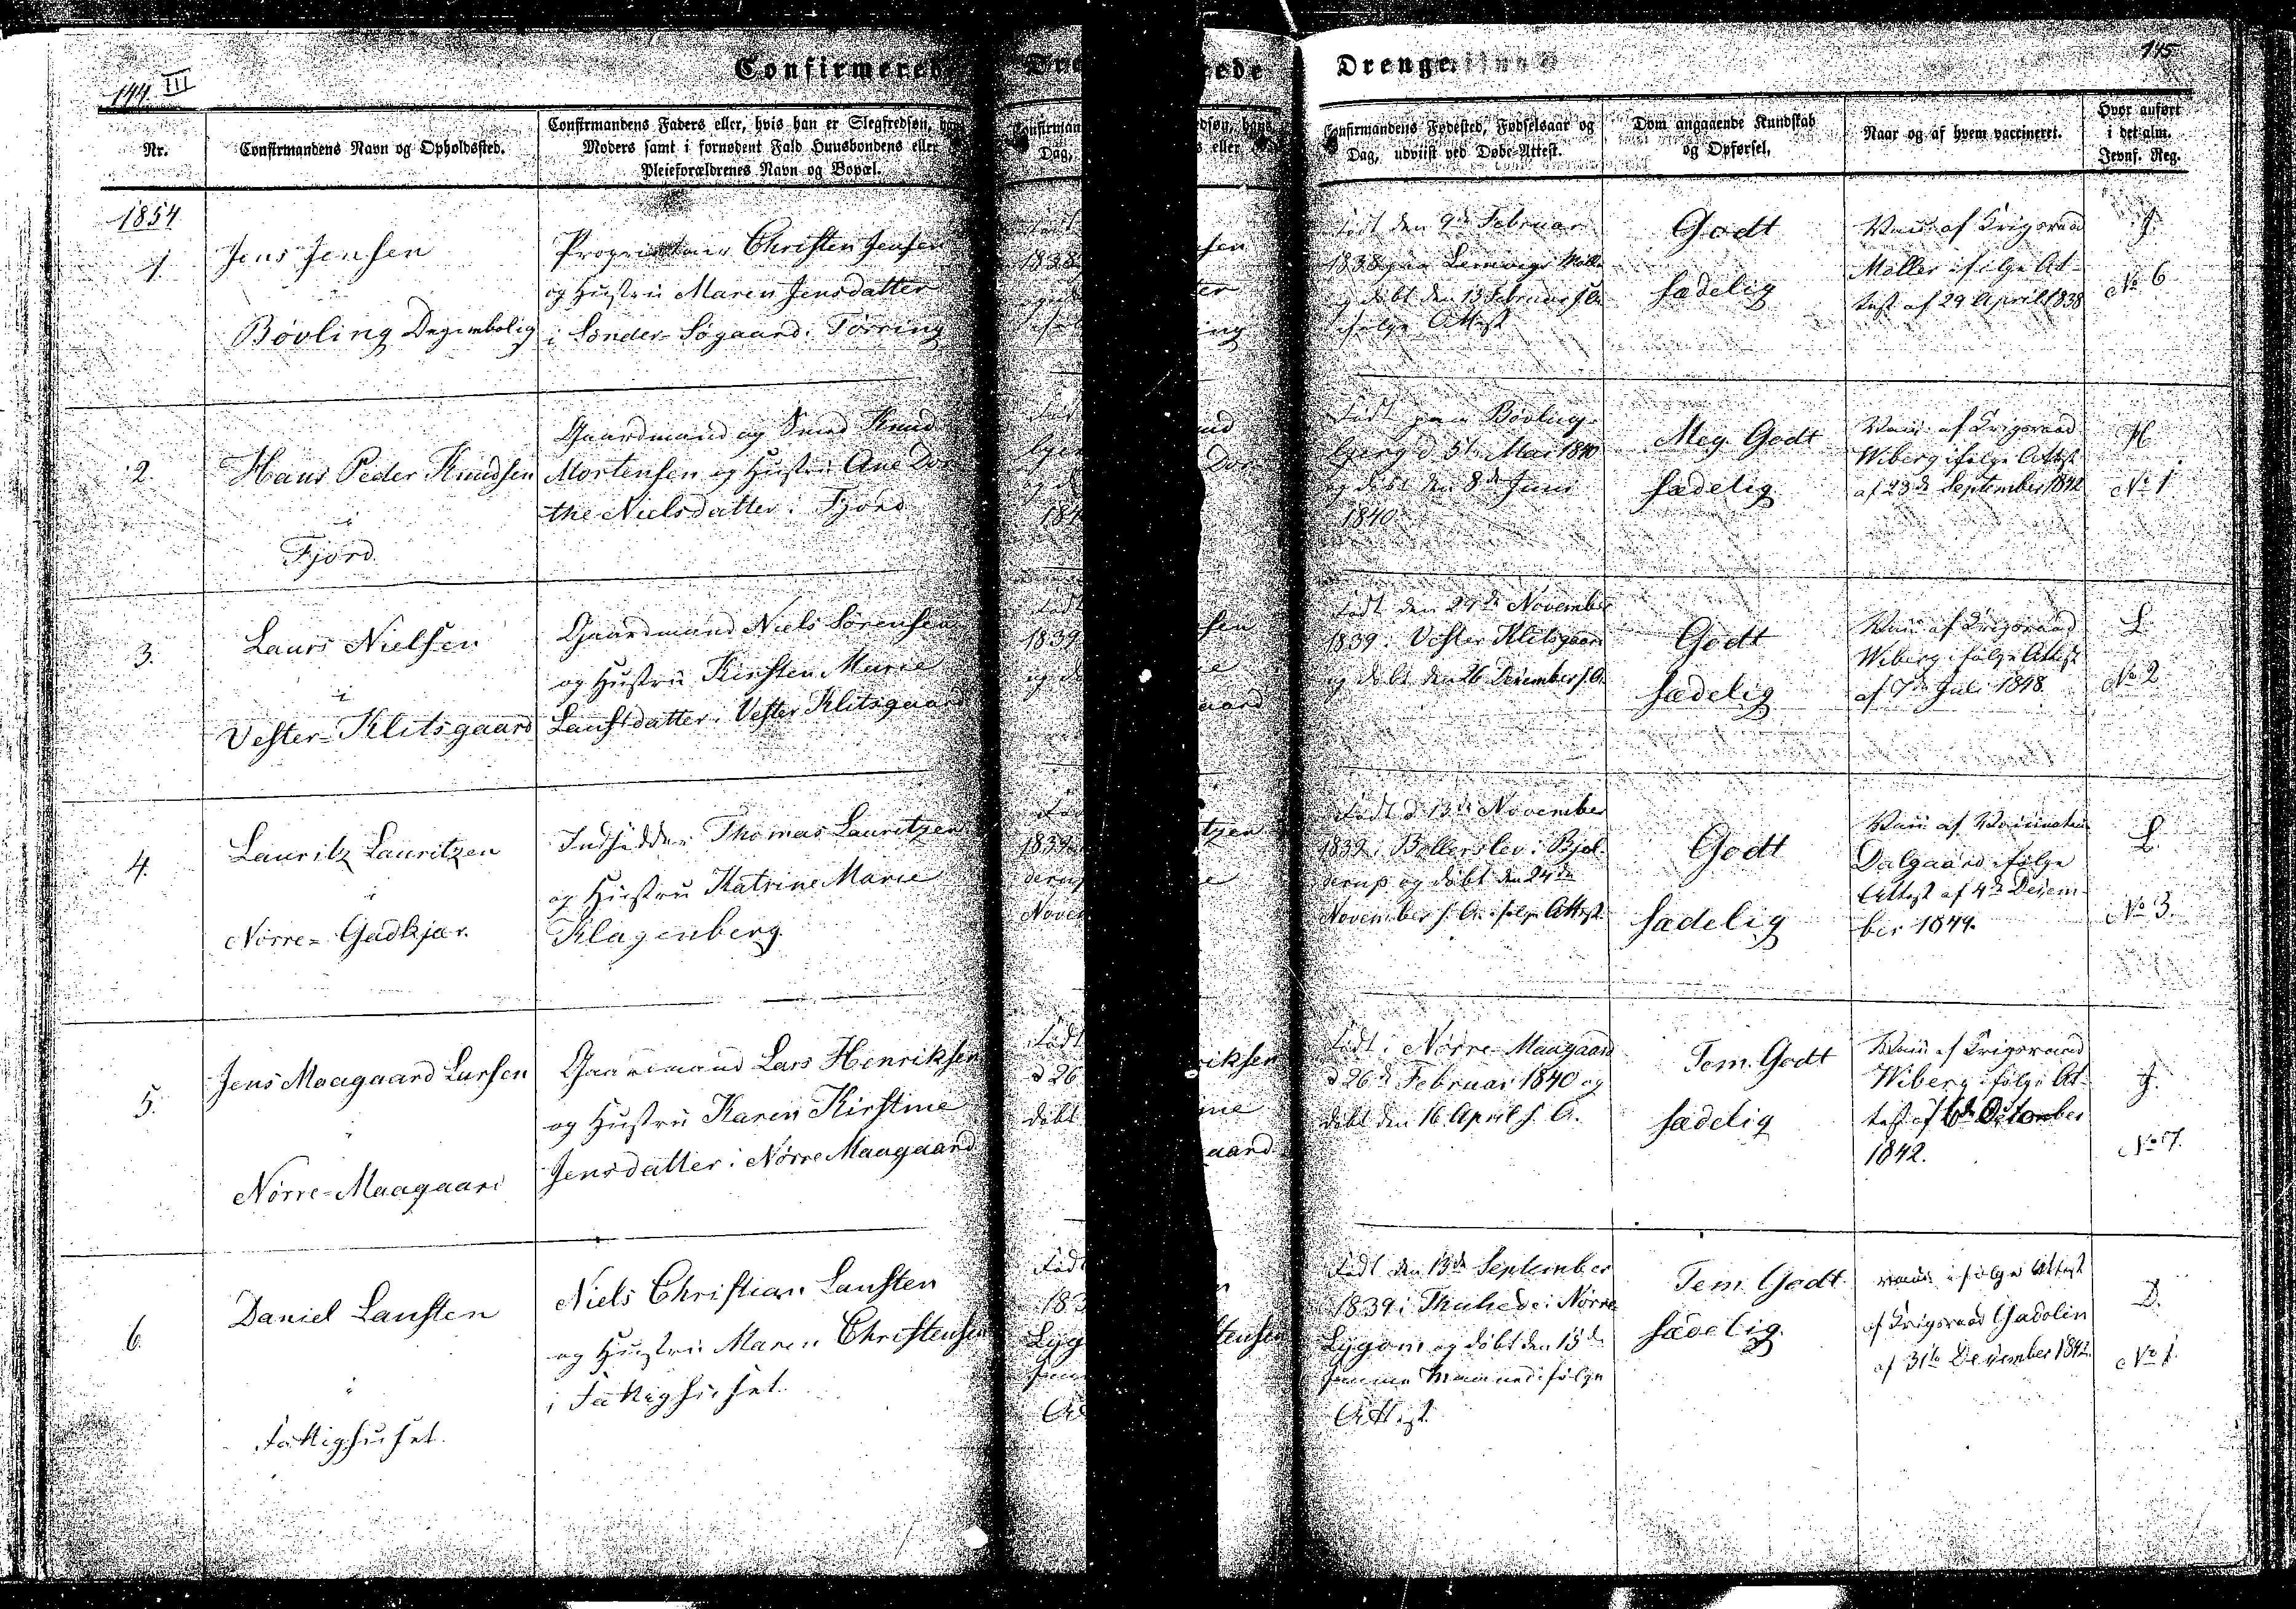 144. III
Confirmerede Drenge.
145
Nr.
Confirmandens Navn og Opholdssted.
Confirmandens Faders eller, hvis han er Slegfredsøn, hans
Moders samt i fornødent Fald Huusbondens eller
Pleieforældrenes Navn og Bopæl.
Confirmandens Fødested, Fødselsaar og
Dag, udviist ved Døbe-Attest.
Dom angaaende Kundskab
og Opførsel.
Naar og af hvem vaccineret.
Hvor anført
i det alm.
Jevnf. Reg.
1854
1
Jens Jensen
i
Bøvling Degnebolig
Proprietair Christen Jensen
og Hustru Maren Jensdatter
i Sønder-Søgaard i Tørring
Født den 9de Februar
1838 paa Lemvigs Mølle
og døbt den 13 Februar s. A.
ifølge Attest
Godt
sædelig
Vacc. af Krigsraad
Møller ifølge At-
test af 29 April 1838
J.
No 6
2.
Hans Peder Knudsen
i
Fjord
Gaardmand og Smed Knud
Mortensen og Hustru Ane Dor
the Nielsdatter i Fjord
Født paa Bøvling-
bjerg d 5te Mai 1840
og døbt den 8de Juni
1840
Meg. Godt
sædelig
Vacc. af Krigsraad
Wiberg ifølge Attest
af 23de September 1842
H
No 1
3.
Laurs Nielsen
i
Vester-Klitsgaard
Gaardmand Niels Sørensen
og Hustru Kirsten Marie
Laustdatter i Vester Klitsgaard
Født den 29de November
1839 i Vester Klitsgaard
og døbt den 26 December s. A.
Godt
sædelig
Vacc. af Krigsraad
Wiberg ifølge Attest
af 7de Juli 1848.
L
No 2
4.
Lauritz Lauritzen
i
Nørre-Gadkjær.
Indsidder Thomas Lauritzen
og Hustru Katrine Marie
Klagenberg
Født d 13de November
1839 i Bollerslev i Bjol-
derup og døbt den 24de
November s. A. ifølge Attest
Godt
sædelig
Vacc. af Vaccinateur
Dalgaard ifølge
Attest af 4de Decem-
ber 1844.
L
No 3.
5.
Jens Maagaard Larsen
i
Nørre-Maagaard
Gaardmand Lars Henriksen
og Hustru Karen Kirstine
Jensdatter i Nørre Maagaard
Født i Nørre-Maagaard
d 26de Februar 1840 og
døbt den 16 April s. A.
Tem. Godt
sædelig
Vacc. af Krigsraad
Wiberg ifølge At-
test af 6de October
1842.
J.
No 7.
6.
Daniel Lausten
i
Fattighuset.
Niels Christian Lausten
og Hustru Maren Christensen
i Fattighuset.
Født den 13de September
1839 i Thuhede i Nørre
Lygom og døbt den 15de
samme Maaned ifølge
Attest.
Tem. Godt
sædelig.
vacc. ifølge Attest
af Krigsraad Gadolin
af 31te December 1842.
D.
No 1.